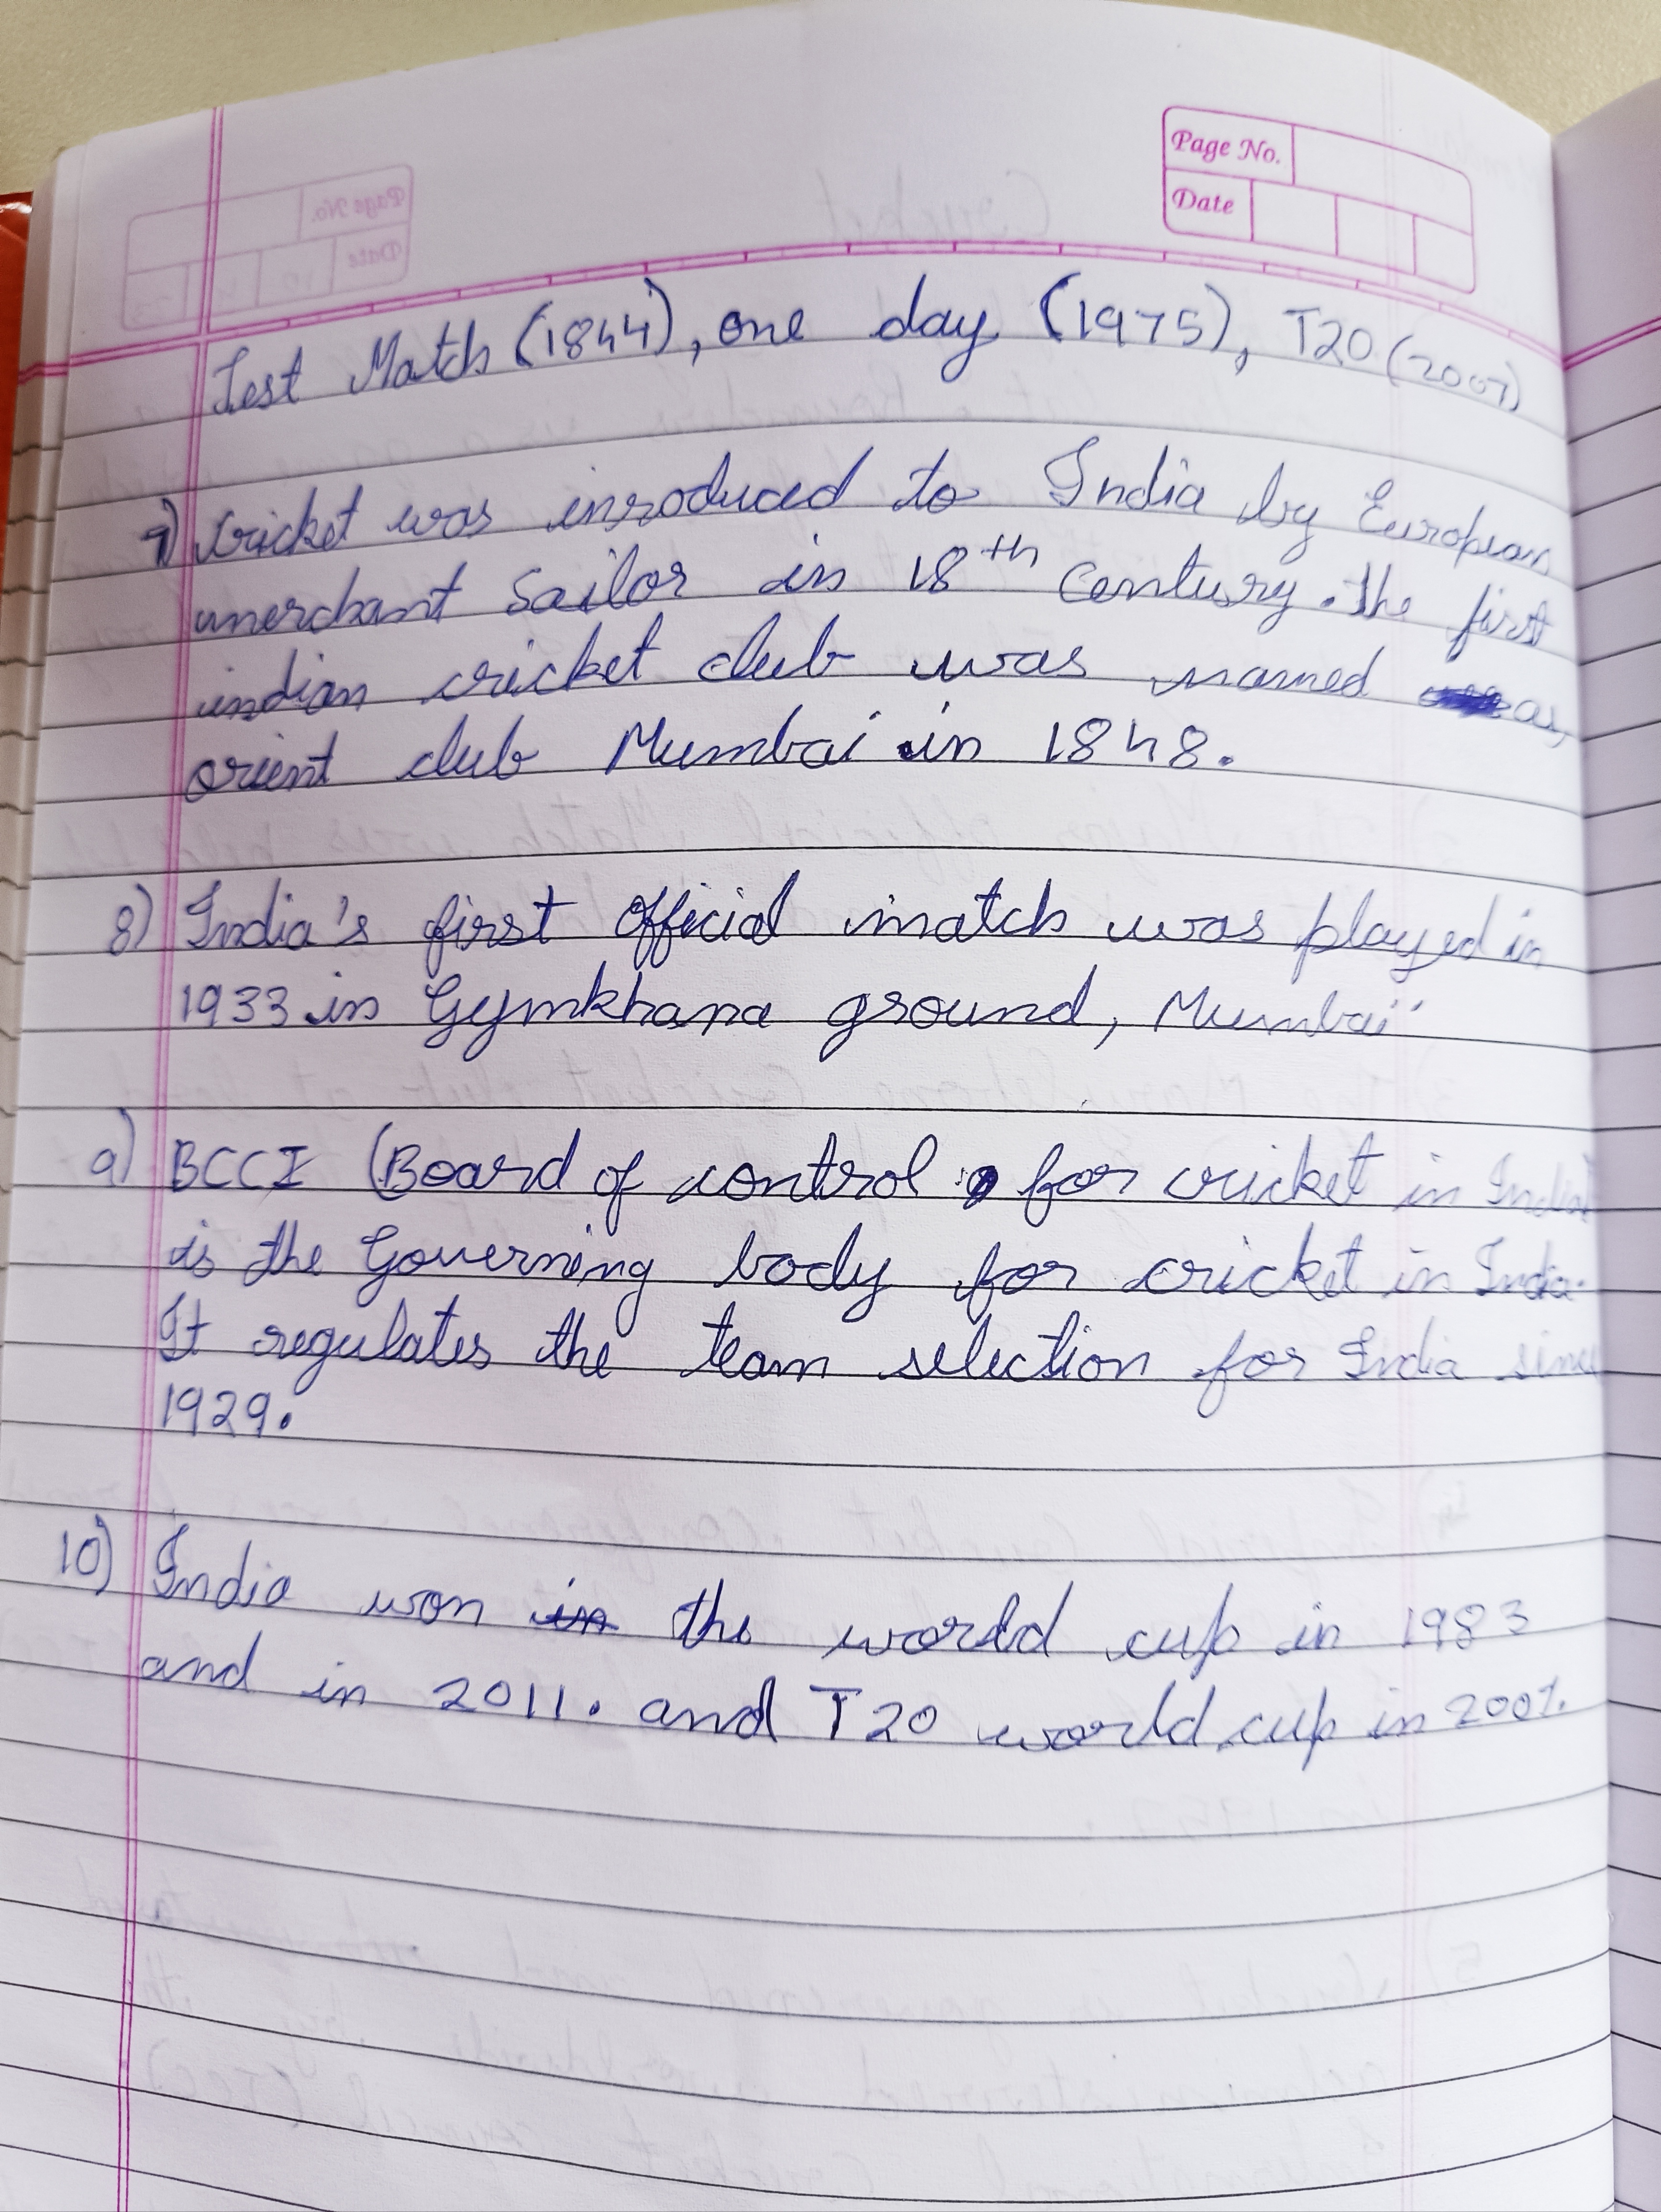 Page No.
Date
Test Match (1844), one day (1975), T20 (2007)
7) Cricket was inroduced to India by European
merchant Sailor in 18th Century. The first
indian cricket club was named as,
orient club Mumbai in 1848.
8) India's first official match was played in
1933 in Gymkhana ground, Mumbai
9) BCCI (Board of control for cricket in India)
is the Governing body for cricket in India.
It regulates the team selection for India since
1929.
10) India won in the world cup in 1983
and in 2011. and T20 world cup in 2007.